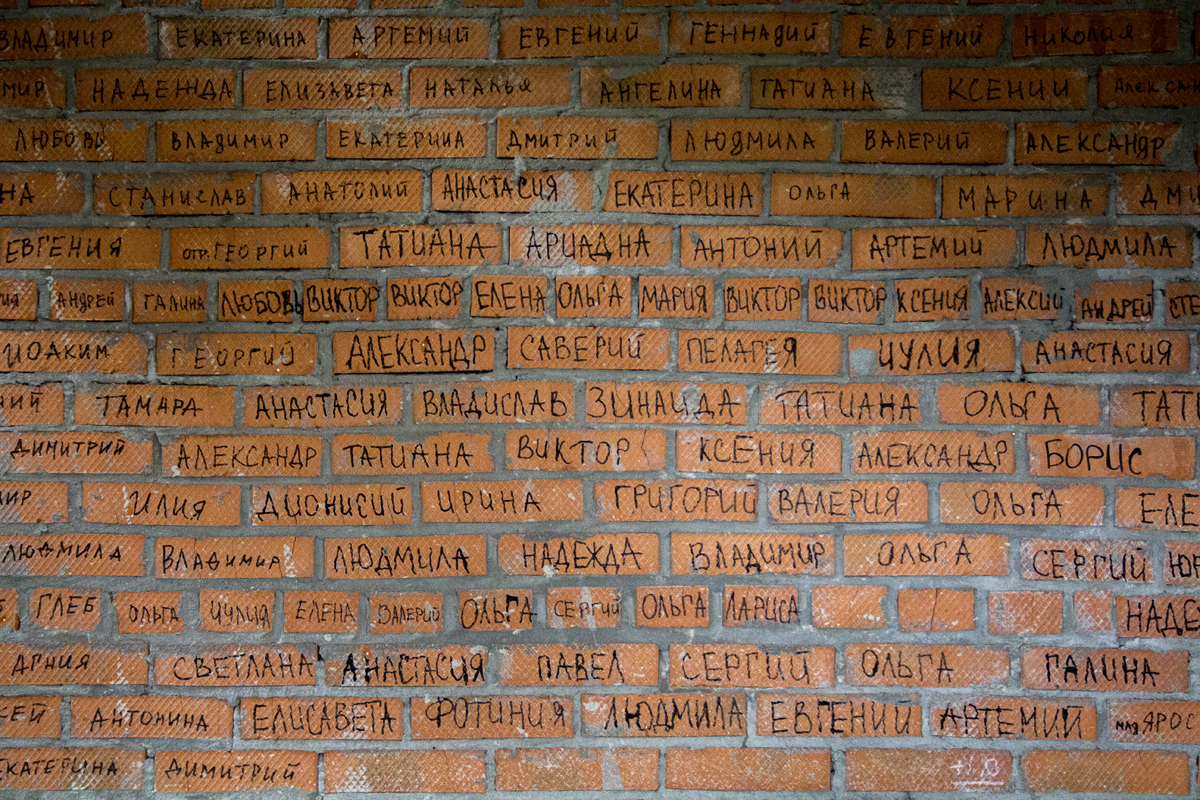 ВЛАДИМИР ЕКАТЕРИНА АРТЕМИЙ ЕВГЕНИЙ ГЕННАДИЙ ЕВГЕНИЙ НИКОЛАЯ
МИР НАДЕЖДА ЕЛИЗАВЕТА НАТАЛЬЯ АНГЕЛИНА ТАТИАНА КСЕНИИ АЛЕКСАН
ЛЮБОВЬ ВЛАДИМИР ЕКАТЕРИНА ДМИТРИЙ ЛЮДМИЛА ВАЛЕРИЙ АЛЕКСАНДР
НА СТАНИСЛАВ АНАТОЛИЙ АНАСТАСИЯ ЕКАТЕРИНА ОЛЬГА МАРИНА ДМИ
ЕВГЕНИЯ отр. ГЕОРГИЙ ТАТИАНА АРИАДНА АНТОНИЙ АРТЕМИЙ ЛЮДМИЛА
ИЯ АНДРЕЙ ГАЛИНА ЛЮБОВЬ ВИКТОР ВИКТОР ЕЛЕНА ОЛЬГА МАРИЯ ВИКТОР ВИКТОР КСЕНИЯ АЛЕКСИЙ АНДРЕЙ СТЕ
ИОАКИМ ГЕОРГИЙ АЛЕКСАНДР САВЕРИЙ ПЕЛАГЕЯ ИУЛИЯ АНАСТАСИЯ
НИЙ ТАМАРА АНАСТАСИЯ ВЛАДИСЛАВ ЗИНАИДА ТАТИАНА ОЛЬГА ТАТ
ДИМИТРИЙ АЛЕКСАНДР ТАТИАНА ВИКТОР КСЕНИЯ АЛЕКСАНДР БОРИС
МИР ИЛИЯ ДИОНИСИЙ ИРИНА ГРИГОРИЙ ВАЛЕРИЯ ОЛЬГА ЕЛЕ
ЛЮДМИЛА ВЛАДИМИР ЛЮДМИЛА НАДЕЖДА ВЛАДИМИР ОЛЬГА СЕРГИЙ ЮР
ГЛЕБ ОЛЬГА ИУЛИЯ ЕЛЕНА ВАЛЕРИЙ ОЛЬГА СЕРГИЙ ОЛЬГА ЛАРИСА НАДЕ
АГНИЯ СВЕТЛАНА АНАСТАСИЯ ПАВЕЛ СЕРГИЙ ОЛЬГА ГАЛИНА
СЕЙ АНТОНИНА ЕЛИСАВЕТА ФОТИНИЯ ЛЮДМИЛА ЕВГЕНИЙ АРТЕМИЙ мл. ЯРОС
ЕКАТЕРИНА ДИМИТРИЙ